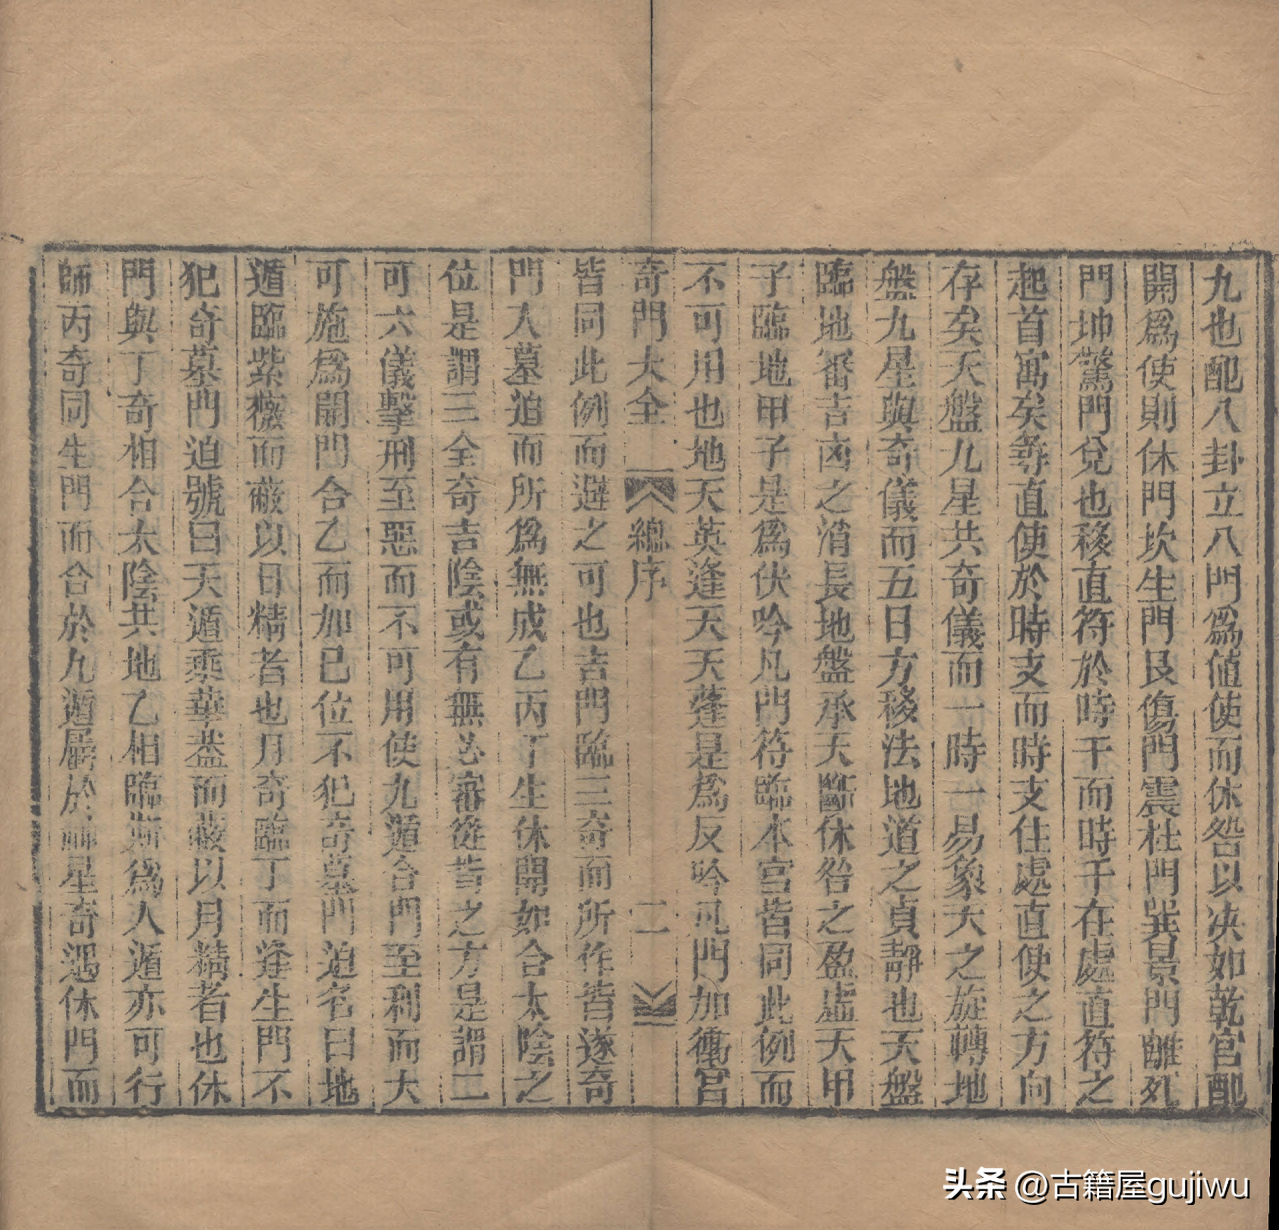 九也配八卦立八門爲値使而休咎以决如乾宮配
開爲使則休門坎生門艮傷門震杜門巽景門離死
門坤驚門兌也移直符於時干而時干在處直符之
起首寓矣尋直使於時支而時支住處直使之方向
存矣天盤九星共奇儀而一時一易象天之旋轉地
盤九星與奇儀而五日方移法地道之貞靜也天盤
臨地審吉凶之消長地盤承天斷休咎之盈虛天甲
子臨地甲子是爲伏吟凡門符臨本宮皆同此例而
不可用也地天英逢天天蓬是爲反吟凡門加衝宮
奇門大全 總序 二
皆同此例而避之可也吉門臨三奇而所作皆遂奇
門入墓迫而所爲無成乙丙丁生休開如合太陰之
位是謂三全奇吉陰或有無必審從昔之方是謂二
可六儀擊刑至惡而不可用使九遁合門至利而大
可施爲開門合乙而加己位不犯奇墓門迫名曰地
遁臨紫薇而蔽以日精者也月奇臨丁而逢生門不
犯奇墓門迫號曰天遁乘華葢而蔽以月精者也休
門與丁奇相合太陰共地乙相臨斯爲人遁亦可行
師丙奇同生門而合於九遁屬於神星奇遇休門而
头条 @古籍屋gujiwu